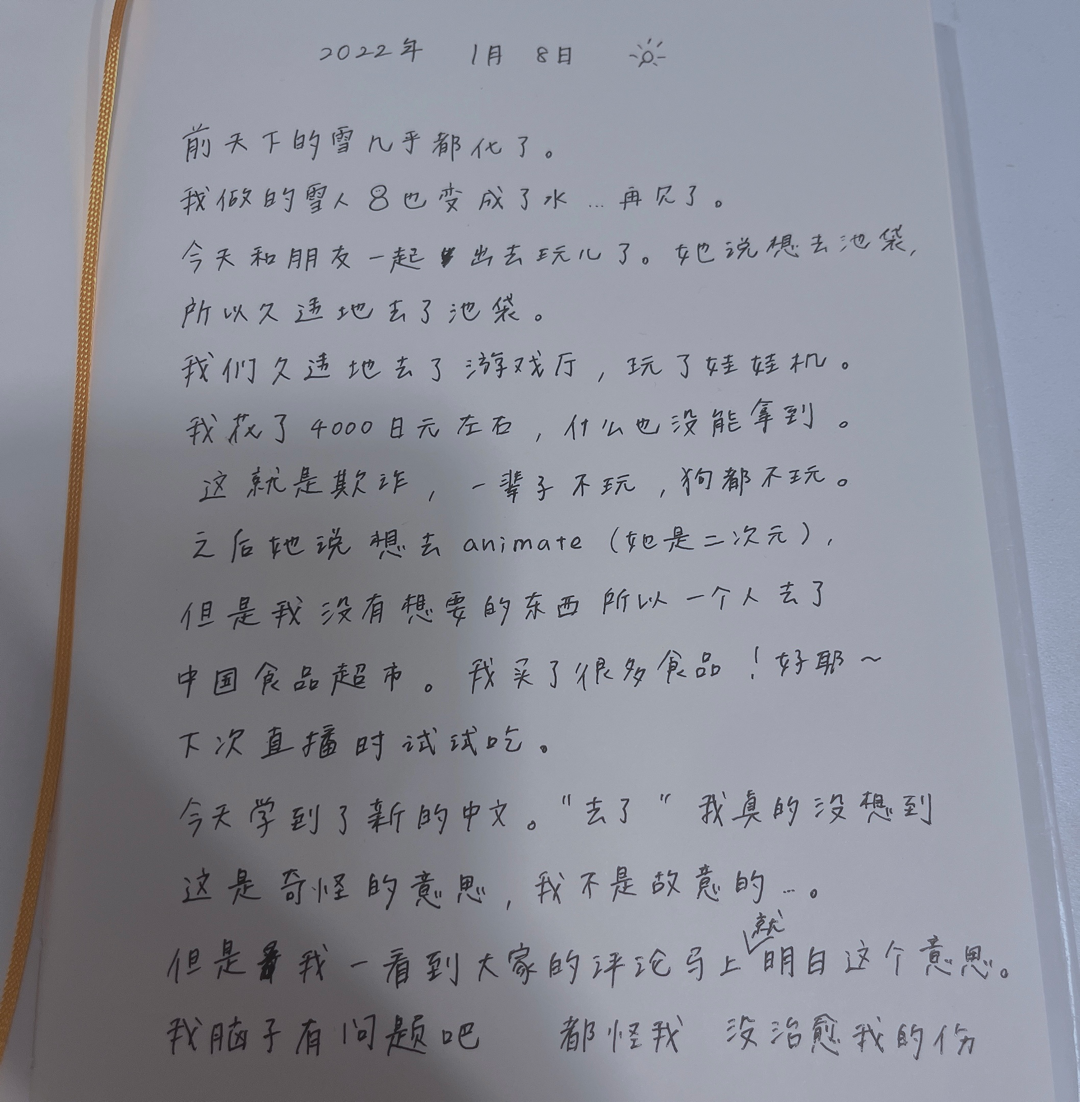 2022年 1月 8日
前天下的雪几乎都化了。
我做的雪人8也变成了水…再见了。
今天和朋友一起出去玩儿了。她说想去池袋,
所以久违地去了池袋。
我们久违地去了游戏厅,玩了娃娃机。
我花了4000日元左右,什么也没能拿到。
这就是欺诈,一辈子不玩,狗都不玩。
之后她说想去animate(她是二次元),
但是我没有想要的东西所以一个人去了
中国食品超市。我买了很多食品!好耶~
下次直播时试试吃。
今天学到了新的中文。"去了"我真的没想到
这是奇怪的意思,我不是故意的…。
但是我一看到大家的评论马上就明白这个意思。
我脑子有问题吧 都怪我 没治愈我的份